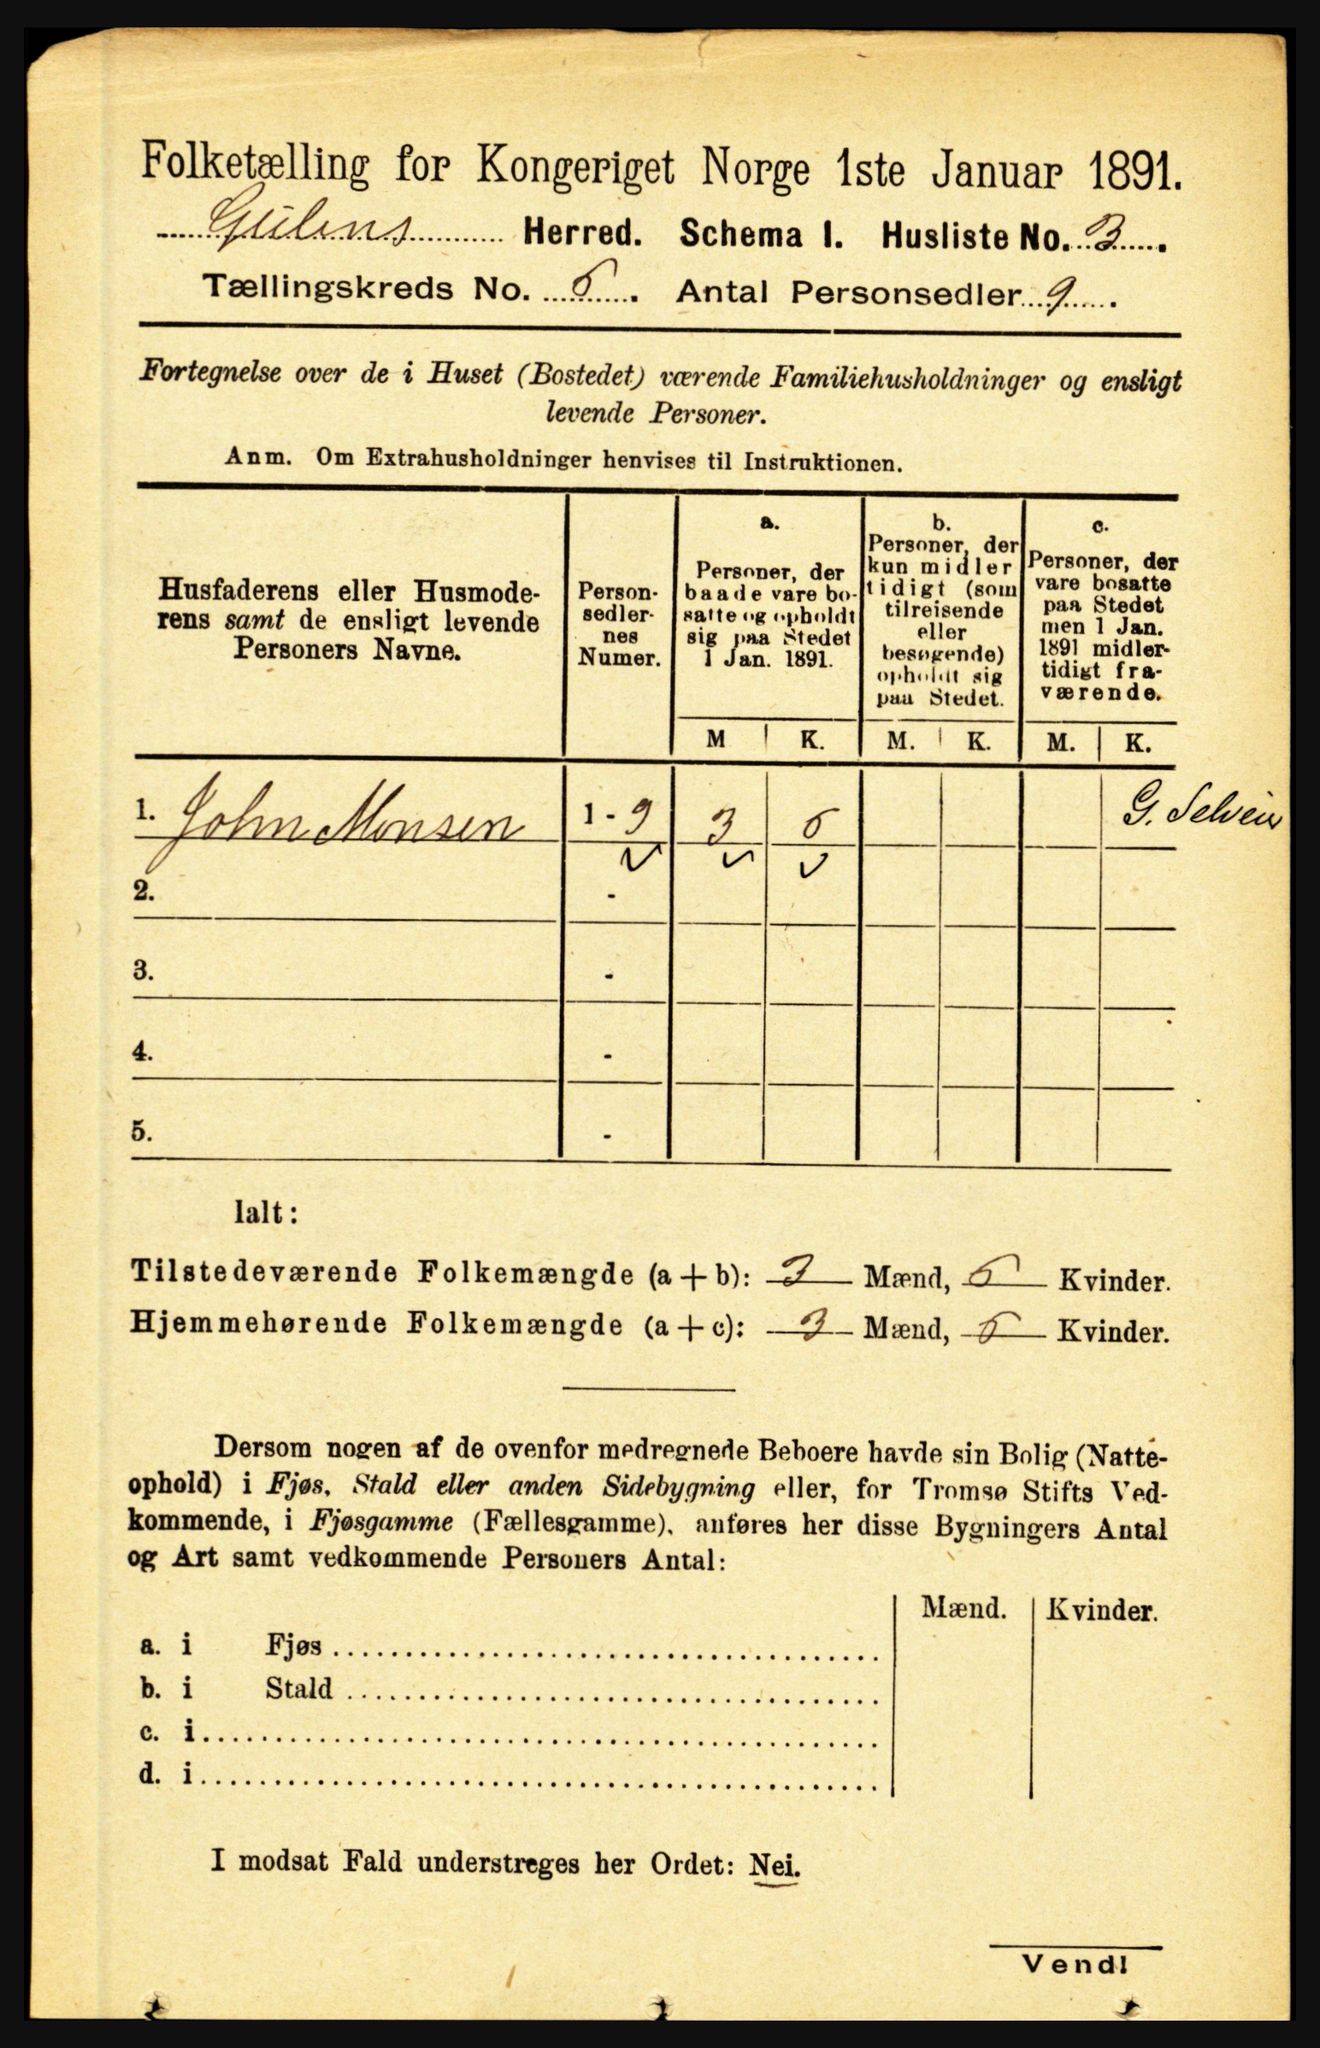 Folketælling for Kongeriget Norge 1ste Januar 1891.
Gulens Herred. Schema I. Husliste No. 3.
Tællingskreds No. 6. Antal Personsedler 9.
Fortegnelse over de i Huset (Bostedet) værende Familiehusholdninger og ensligt
levende Personer.
Anm. Om Extrahusholdninger henvises til Instruktionen.
Husfaderens eller Husmode-
rens samt de ensligt levende
Personers Navne.
Person-
sedler-
nes
Numer.
a.
Personer, der
baade vare bo-
satte og opholdt
sig paa Stedet
1 Jan. 1891.
b.
Personer, der
kun midler
tidigt (som
tilreisende
eller
besøgende)
opholdt sig
paa Stedet.
c.
Personer, der
vare bosatte
paa Stedet
men 1 Jan.
1891 midler-
tidigt fra-
værende.
M K. M. K. M. K.
1. John Monsen 1 - 9 3 6 G.
2. -
3. -
4. -
5. -
Ialt:
Tilstedeværende Folkemængde (a + b): 3 Mænd, 6 Kvinder.
Hjemmehørende Folkemængde (a + c): 3 Mænd, 6 Kvinder.
Dersom nogen af de ovenfor medregnede Beboere havde sin Bolig (Natte-
ophold) i Fjøs, Stald eller anden Sidebygning eller, for Tromsø Stifts Ved-
kommende, i Fjøsgamme (Fællesgamme), anføres her disse Bygningers Antal
og Art samt vedkommende Personers Antal:
Mænd. Kvinder.
a. i Fjøs
b. i Stald
c. i
d. i
I modsat Fald understreges her Ordet: Nei.
Vend!